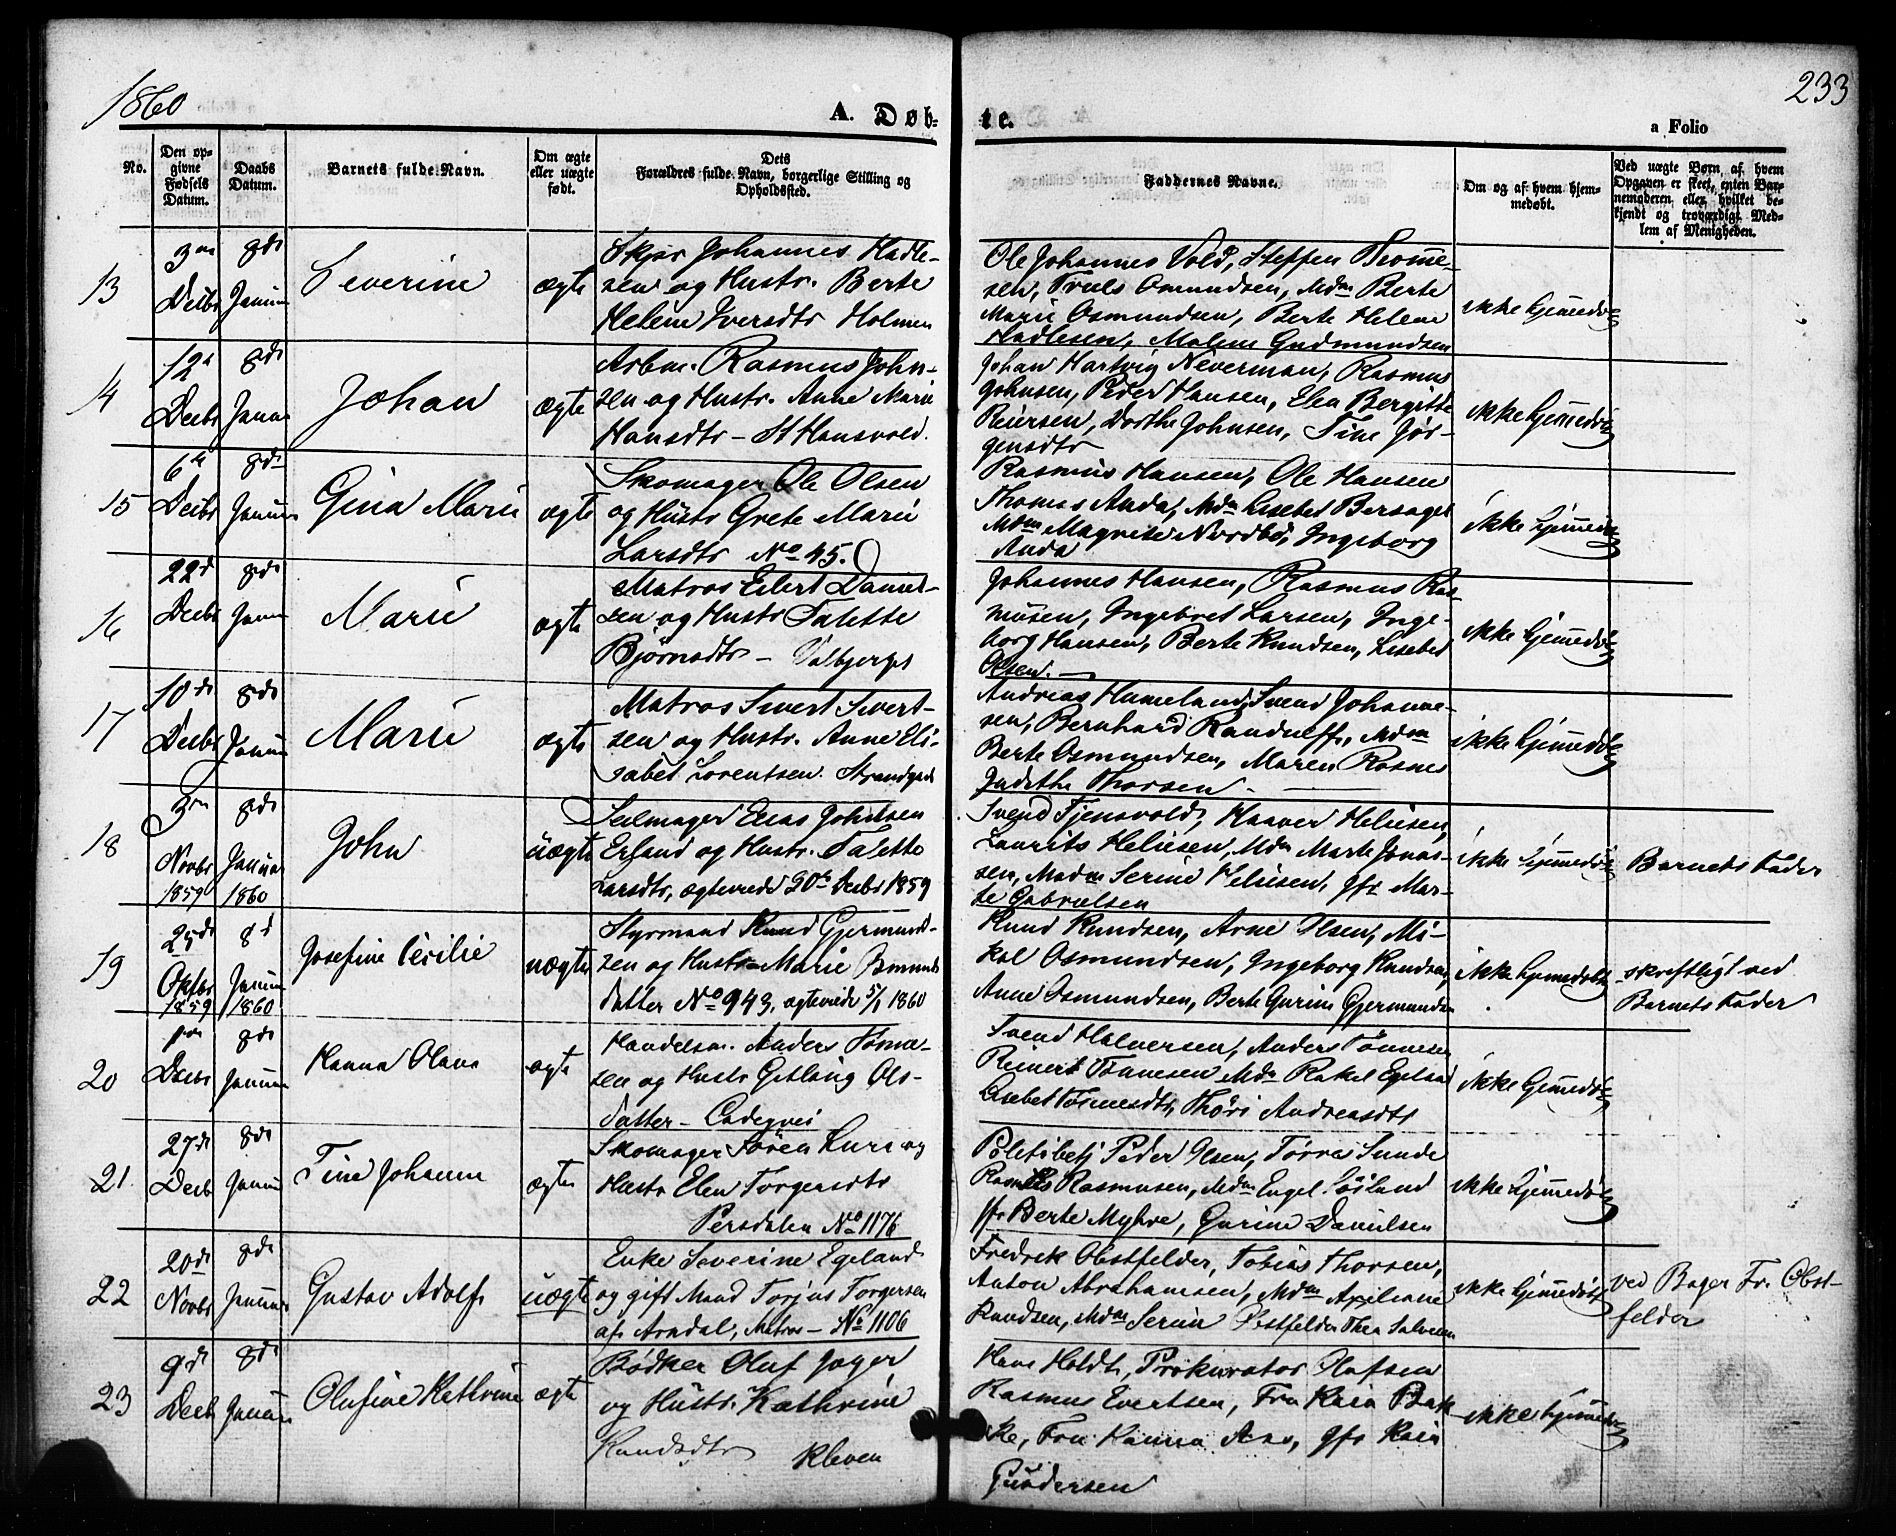 1860
A. Døb-
te.
233
a Folio
No.
Den op-
givne
Fødsels
Datum.
Daabs
Datum.
Barnets fulde Navn.
Om ægte
eller uægte
født.
Dets
Forældres fulde Navn, borgerlige Stilling og
Opholdssted.
Faddernes Navne.
Om og af hvem hjem-
medøbt.
Ved uægte Børn, af hvem
Opgaven er skeet, enten Bar-
nemoderen eller hvilket be-
kjendt og troværdigt Med-
lem af Menigheden.
13
3
Decbr
8de
Januar
Severine
ægte
Johannes Hadle-
sen og Hustr. Berte
Helene Iversdtr Holmen
Ole Johannes Vold, Steffen Tromme-
sen, Truls Omundsen, Mdm Berte
Marie Osmundsen, Berte Helene
Hadlesen, Malene Gudmundsen
ikke hjemmedøbt
14
12
Decbr
8de
Januar
Johan
ægte
Arbm. Rasmus John-
sen og Hustr. Anne Marie
Hansdtr – St Hansvold.
Johan Hartvig Neverman, Rasmus
Johnsen, Peder Hansen, Elea Bergitte
Reiersen, Dorthe Johnsen, Tine Jør-
gensdtr
ikke hjemmedøbt
15
6te
Decbr
8de
Januar
Gina Marie
ægte
Skomager Ole Olsen
og Hustr Grete Marie
Larsdtr No 45.
Rasmus Hansen, Ole Hansen
Thomas Anda, Mdm Lisebet Bersagel
Mdm Magrete Nordbø, Ingeborg
Anda
ikke hjemmedøbt
16
22d
Decbr
8de
Januar
Marie
ægte
Matros Eilert Daniel-
sen og Hustr Talette
Bjørnsdtr – Valbjerget
Johannes Hansen, Rasmus Ras-
musen, Ingebret Larsen, Inge-
borg Hansen, Berte Knudsen, Lisebet
Olsen. –
ikke hjemmedøbt
17
10de
Decbr
8de
Januar
Marie
ægte
Matros Sivert Sivert-
sen og Hustr. Anne Eli-
sabet Lorentsen. Strandgade
Andreas Hummeland, Svend Johanne-
sen, Bernhard Randulff, Mdm
Berte Osmundsen, Maren Rosnes
Judithe Thorsen –
ikke hjemmedøbt
18
3
Novbr
1859
8de
Januar
1860
John
uægte
Seilmager Elias Johnsen
Erland og Hustr. Talette
Larsdtr, ægteviede 30te Decbr 1859
Svend Tjensvold, Haaver Heliesen,
Laurits Heliesen, Mdm Marte Jonas-
sen, Madm Serine Heliesen, Jfr Mar-
te Gabrielsen
ikke hjemmedøbt
Barnets Fader
19
25de
Oktbr
1859
8d
Januar
1860
Josefine Cecilie
uægte
Styrmand Knud Gjermund-
sen og Hustr Marie Omunds
datter No 943, ægteviede 5/1 1860
Knud Knudsen, Arne Olsen, Mi-
kal Osmundsen, Ingeborg Knudsen,
Anne Osmundsen, Berte Gurine Gjermundsen
ikke hjemmedøbt
skriftligt ved
Barnets Fader
20
Decbr
8de
Januar
Hanna Olava
ægte
Handelsm. Anders Tønne-
sen og Hustr Getlaug Ols-
datter – Ladegvei
Svend Halversen, Anders Tønnesen
Reinert Tønnesen, Mdm Rakel Egeland
Lisebet Tønnesdtr, Thøri Andreasdtr
ikke hjemmedøbt
21.
27de
Decbr
8de
Januar
Tine Johanne
ægte
Skomager Søren Lura og
Hustr Elen Torgersdtr
Persdalen No 1176
Politibetj Peder Olsen, Tørres Sunde
Rasmus Rasmussen, Mdm Engel Løiland
Jfr Berte Myhre, Gurine Danielsen
ikke hjemmedøbt
22
20de
Novbr
8de
Januar
Gustav Adolf
uægte
Enke Severine Egeland
og gift Mand Torjus Torgersen
af Arndal, Matros – No 1106
Fredrek Obstfelder, Tobias Thorsen,
Anton Abrahamsen, Mdm Axeliane
Knudsen, Mdm Serine Obstfelder Thea Salvesen
ikke hjemmedøbt
ved Bager Fr. Obst-
felder
23
9de
Decbr
8de
Januar
Olufine Kathrine
ægte
Bødker Oluf Jager
og Hustr. Kathrine
Knudsdtr Kleven
Hans Holdt, Prokurator Olafsen
Rasmus Evertsen, Fru Kaia Bak-
ke, Fru Hanna Aas, Jfr Kaia
Gundersen
ikke hjemmedøbt